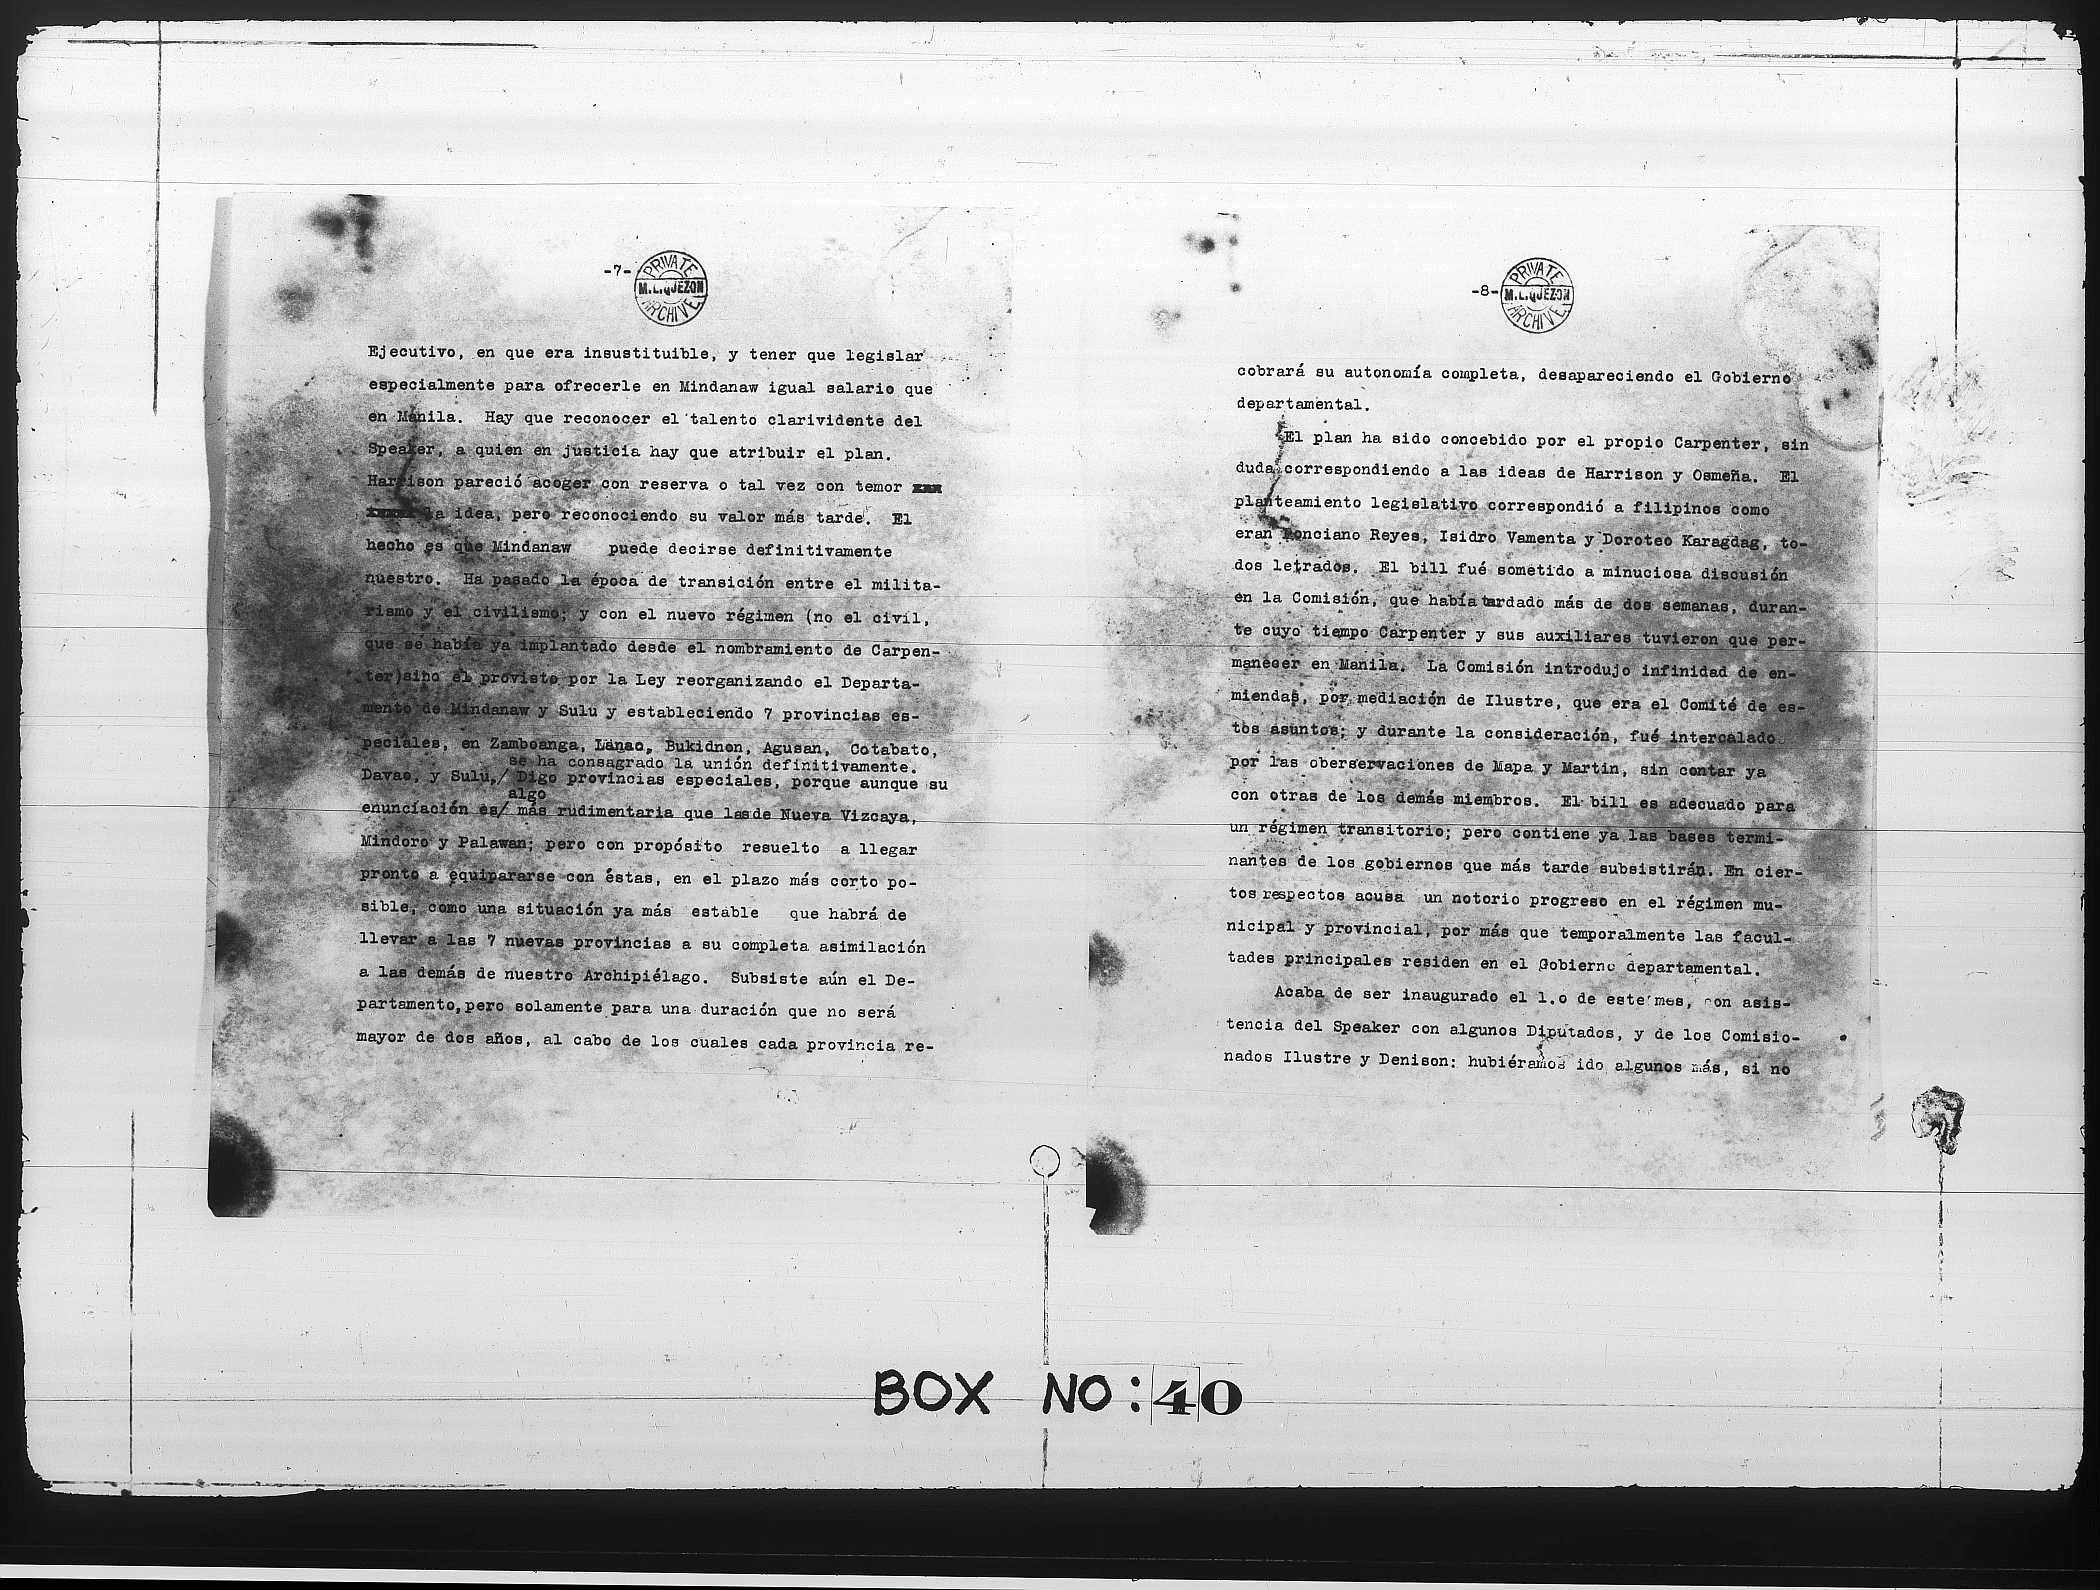 -7-
PRIVATE
M.L.QUEZON
ARCHIVE
Ejecutivo, en que era insustituible, y tener que legislar
especialmente para ofrecerle en Mindanaw igual salario que
en Manila. Hay que reconocer el talento clarividente del
Speaker, a quien en justicia hay que atribuir el plan.
Harrison pareció acoger con reserva o tal vez con temor xxx
xxxxx la idea, pero reconociendo su valor más tarde. El
hecho es que Mindanaw puede decirse definitivamente
nuestro. Ha pasado la época de transición entre el milita-
rismo y el civilismo; y con el nuevo régimen (no el civil,
que se había ya implantado desde el nombramiento de Carpen-
ter)sino el provisto por la Ley reorganizando el Departa-
mento de Mindanaw y Sulu y estableciendo 7 provincias es-
peciales, en Zamboanga, Lanao, Bukidnon, Agusan, Cotabato,
se ha consagrado la unión definitivamente.
Davao, y Sulu,/ Digo provincias especiales, porque aunque su
algo
enunciación es/ más rudimentaria que lasde Nueva Vizcaya,
Mindoro y Palawan; pero con propósito resuelto a llegar
pronto a equipararse con éstas, en el plazo más corto po-
sible, como una situación ya más estable que habrá de
llevar a las 7 nuevas provincias a su completa asimilación
a las demás de nuestro Archipiélago. Subsiste aún el De-
partamento,pero solamente para una duración que no será
mayor de dos años, al cabo de los cuales cada provincia re-
-8-
PRIVATE
M.L.QUEZON
ARCHIVE
cobrará su autonomía completa, desapareciendo el Gobierno
departamental.
El plan ha sido concebido por el propio Carpenter, sin
duda correspondiendo a las ideas de Harrison y Osmeña. El
planteamiento legislativo correspondió a filipinos como
eran Ponciano Reyes, Isidro Vamenta y Doroteo Karagdag, to-
dos letrados. El bill fué sometido a minuciosa discusión
en la Comisión, que había tardado más de dos semanas, duran-
te cuyo tiempo Carpenter y sus auxiliares tuvieron que per-
manecer en Manila. La Comisión introdujo infinidad de en-
miendas, por mediación de Ilustre, que era el Comité de es-
tos asuntos; y durante la consideración, fué intercalado
por las oberservaciones de Mapa y Martin, sin contar ya
con otras de los demás miembros. El bill es adecuado para
un régimen transitorio; pero contiene ya las bases termi-
nantes de los gobiernos que más tarde subsistirán. En cier-
tos respectos acusa un notorio progreso en el régimen mu-
nicipal y provincial, por más que temporalmente las facul-
tades principales residen en el Gobierno departamental.
Acaba de ser inaugurado el 1.o de este mes, con asis-
tencia del Speaker con algunos Diputados, y de los Comisio-
nados Ilustre y Denison: hubiéramos ido algunos más, si no
BOX NO: 40